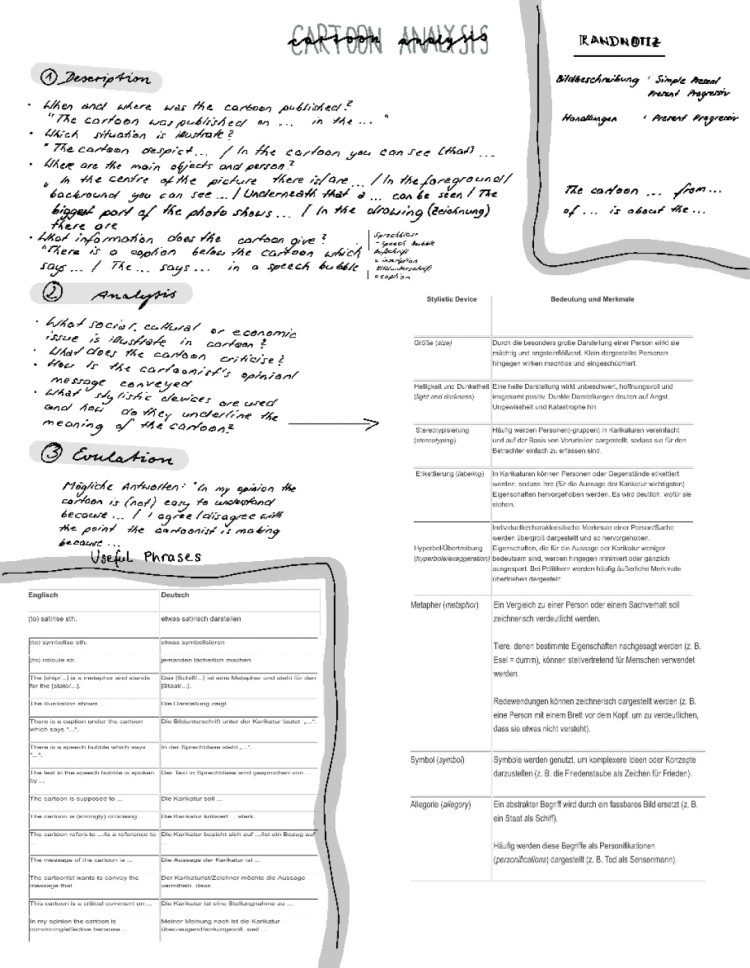 CARTOON ANALYSIS
cartoon analysis
① Description
• When and where was the cartoon published?
"The cartoon was published on ... in the ... "
• Which situation is illustrate?
"The cartoon despict... / In the cartoon you can see (that) ...
• Where are the main objects and person?
" In the centre of the picture there is/are ... / In the foreground/
backround you can see ... / Underneath that a ... can be seen / The
biggest part of the photo shows ... / In the drawing (Zeichnung)
there are
• What information does the cartoon give?
"There is a caption below the cartoon which
says ... / The ... says ... in a speech bubble
Sprechblase
= speech bubble
Aufschrift
= inscription
Bildunterschrift
= caption
RANDNOTIZ
Bildbeschreibung : Simple Present
Present Progressiv
Handlungen : Present Progressiv
The cartoon ... from ...
of ... is about the ...
② Analysis
• What social, cultural or economic
issue is illustrate in cartoon?
• What does the cartoon criticise?
• How is the cartoonist's opinion/
message conveyed
• What stylistic devices are used
and how do they underline the
meaning of the cartoon?
③ Evulation
Mögliche Antworten: "In my opinion the
cartoon is (not) easy to understand
because ... / I agree/disagree with
the point the cartoonist is making
because ...
Useful Phrases
Englisch Deutsch
(to) satirise sth. etwas satirisch darstellen
(to) symbolise sth. etwas symbolisieren
(to) ridicule sb. jemanden lächerlich machen
The [ship/...] is a metaphor and stands Das [Schiff/...] ist eine Metapher und steht für den
for the [state/...]. [Staat/...].
The illustration shows ... Die Darstellung zeigt ...
There is a caption under the cartoon Die Bildunterschrift unter der Karikatur lautet „...".
which says "...".
There is a speech bubble which says In der Sprechblase steht „...".
"...".
The text in the speech bubble is spoken Der Text in Sprechblase wird gesprochen von ...
by ...
The cartoon is supposed to ... Die Karikatur soll ...
The cartoon is (strongly) criticising ... Die Karikatur kritisiert ... stark.
The cartoon refers to .../is a reference to Die Karikatur bezieht sich auf .../ist ein Bezug auf
... ...
The message of the cartoon is ... Die Aussage der Karikatur ist ...
The cartoonist wants to convey the Der Karikaturist/Zeichner möchte die Aussage
message that ... vermitteln, dass ...
This cartoon is a critical comment on ... Die Karikatur ist eine Stellungnahme zu ...
In my opinion the cartoon is Meiner Meinung nach ist die Karikatur
convincing/effective because ... überzeugend/wirkungsvoll, weil ...
Stylistic Device Bedeutung und Merkmale
Größe (size) Durch die besonders große Darstellung einer Person wirkt sie
mächtig und angsteinflößend. Klein dargestellte Personen
hingegen wirken machtlos und eingeschüchtert.
Helligkeit und Dunkelheit Eine helle Darstellung wirkt unbeschwert, hoffnungsvoll und
(light and darkness) insgesamt positiv. Dunkle Darstellungen deuten auf Angst,
Ungewissheit und Katastrophe hin.
Stereotypisierung Häufig werden Personen(-gruppen) in Karikaturen vereinfacht
(stereotyping) und auf der Basis von Vorurteilen dargestellt, sodass sie für den
Betrachter einfach zu erfassen sind.
Etikettierung (labeling) In Karikaturen können Personen oder Gegenstände etikettiert
werden, sodass ihre (für die Aussage der Karikatur wichtigsten)
Eigenschaften hervorgehoben werden. Es wird deutlich, wofür sie
stehen.
Individuelle/charakteristische Merkmale einer Person/Sache
werden übergroß dargestellt und so hervorgehoben.
Hyperbol/Übertreibung Eigenschaften, die für die Aussage der Karikatur weniger
(hyperbole/exaggeration) bedeutsam sind, werden hingegen minimiert oder gänzlich
ausgespart. Bei Politikern werden häufig äußerliche Merkmale
übertrieben dargestellt.
Metapher (metaphor) Ein Vergleich zu einer Person oder einem Sachverhalt soll
zeichnerisch verdeutlicht werden.
Tiere, denen bestimmte Eigenschaften nachgesagt werden (z. B.
Esel = dumm), können stellvertretend für Menschen verwendet
werden.
Redewendungen können zeichnerisch dargestellt werden (z. B.
eine Person mit einem Brett vor dem Kopf, um zu verdeutlichen,
dass sie etwas nicht versteht).
Symbol (symbol) Symbole werden genutzt, um komplexere Ideen oder Konzepte
darzustellen (z. B. die Friedenstaube als Zeichen für Frieden).
Allegorie (allegory) Ein abstrakter Begriff wird durch ein fassbares Bild ersetzt (z. B.
ein Staat als Schiff).
Häufig werden diese Begriffe als Personifikationen
(personifications) dargestellt (z. B. Tod als Sensenmann).